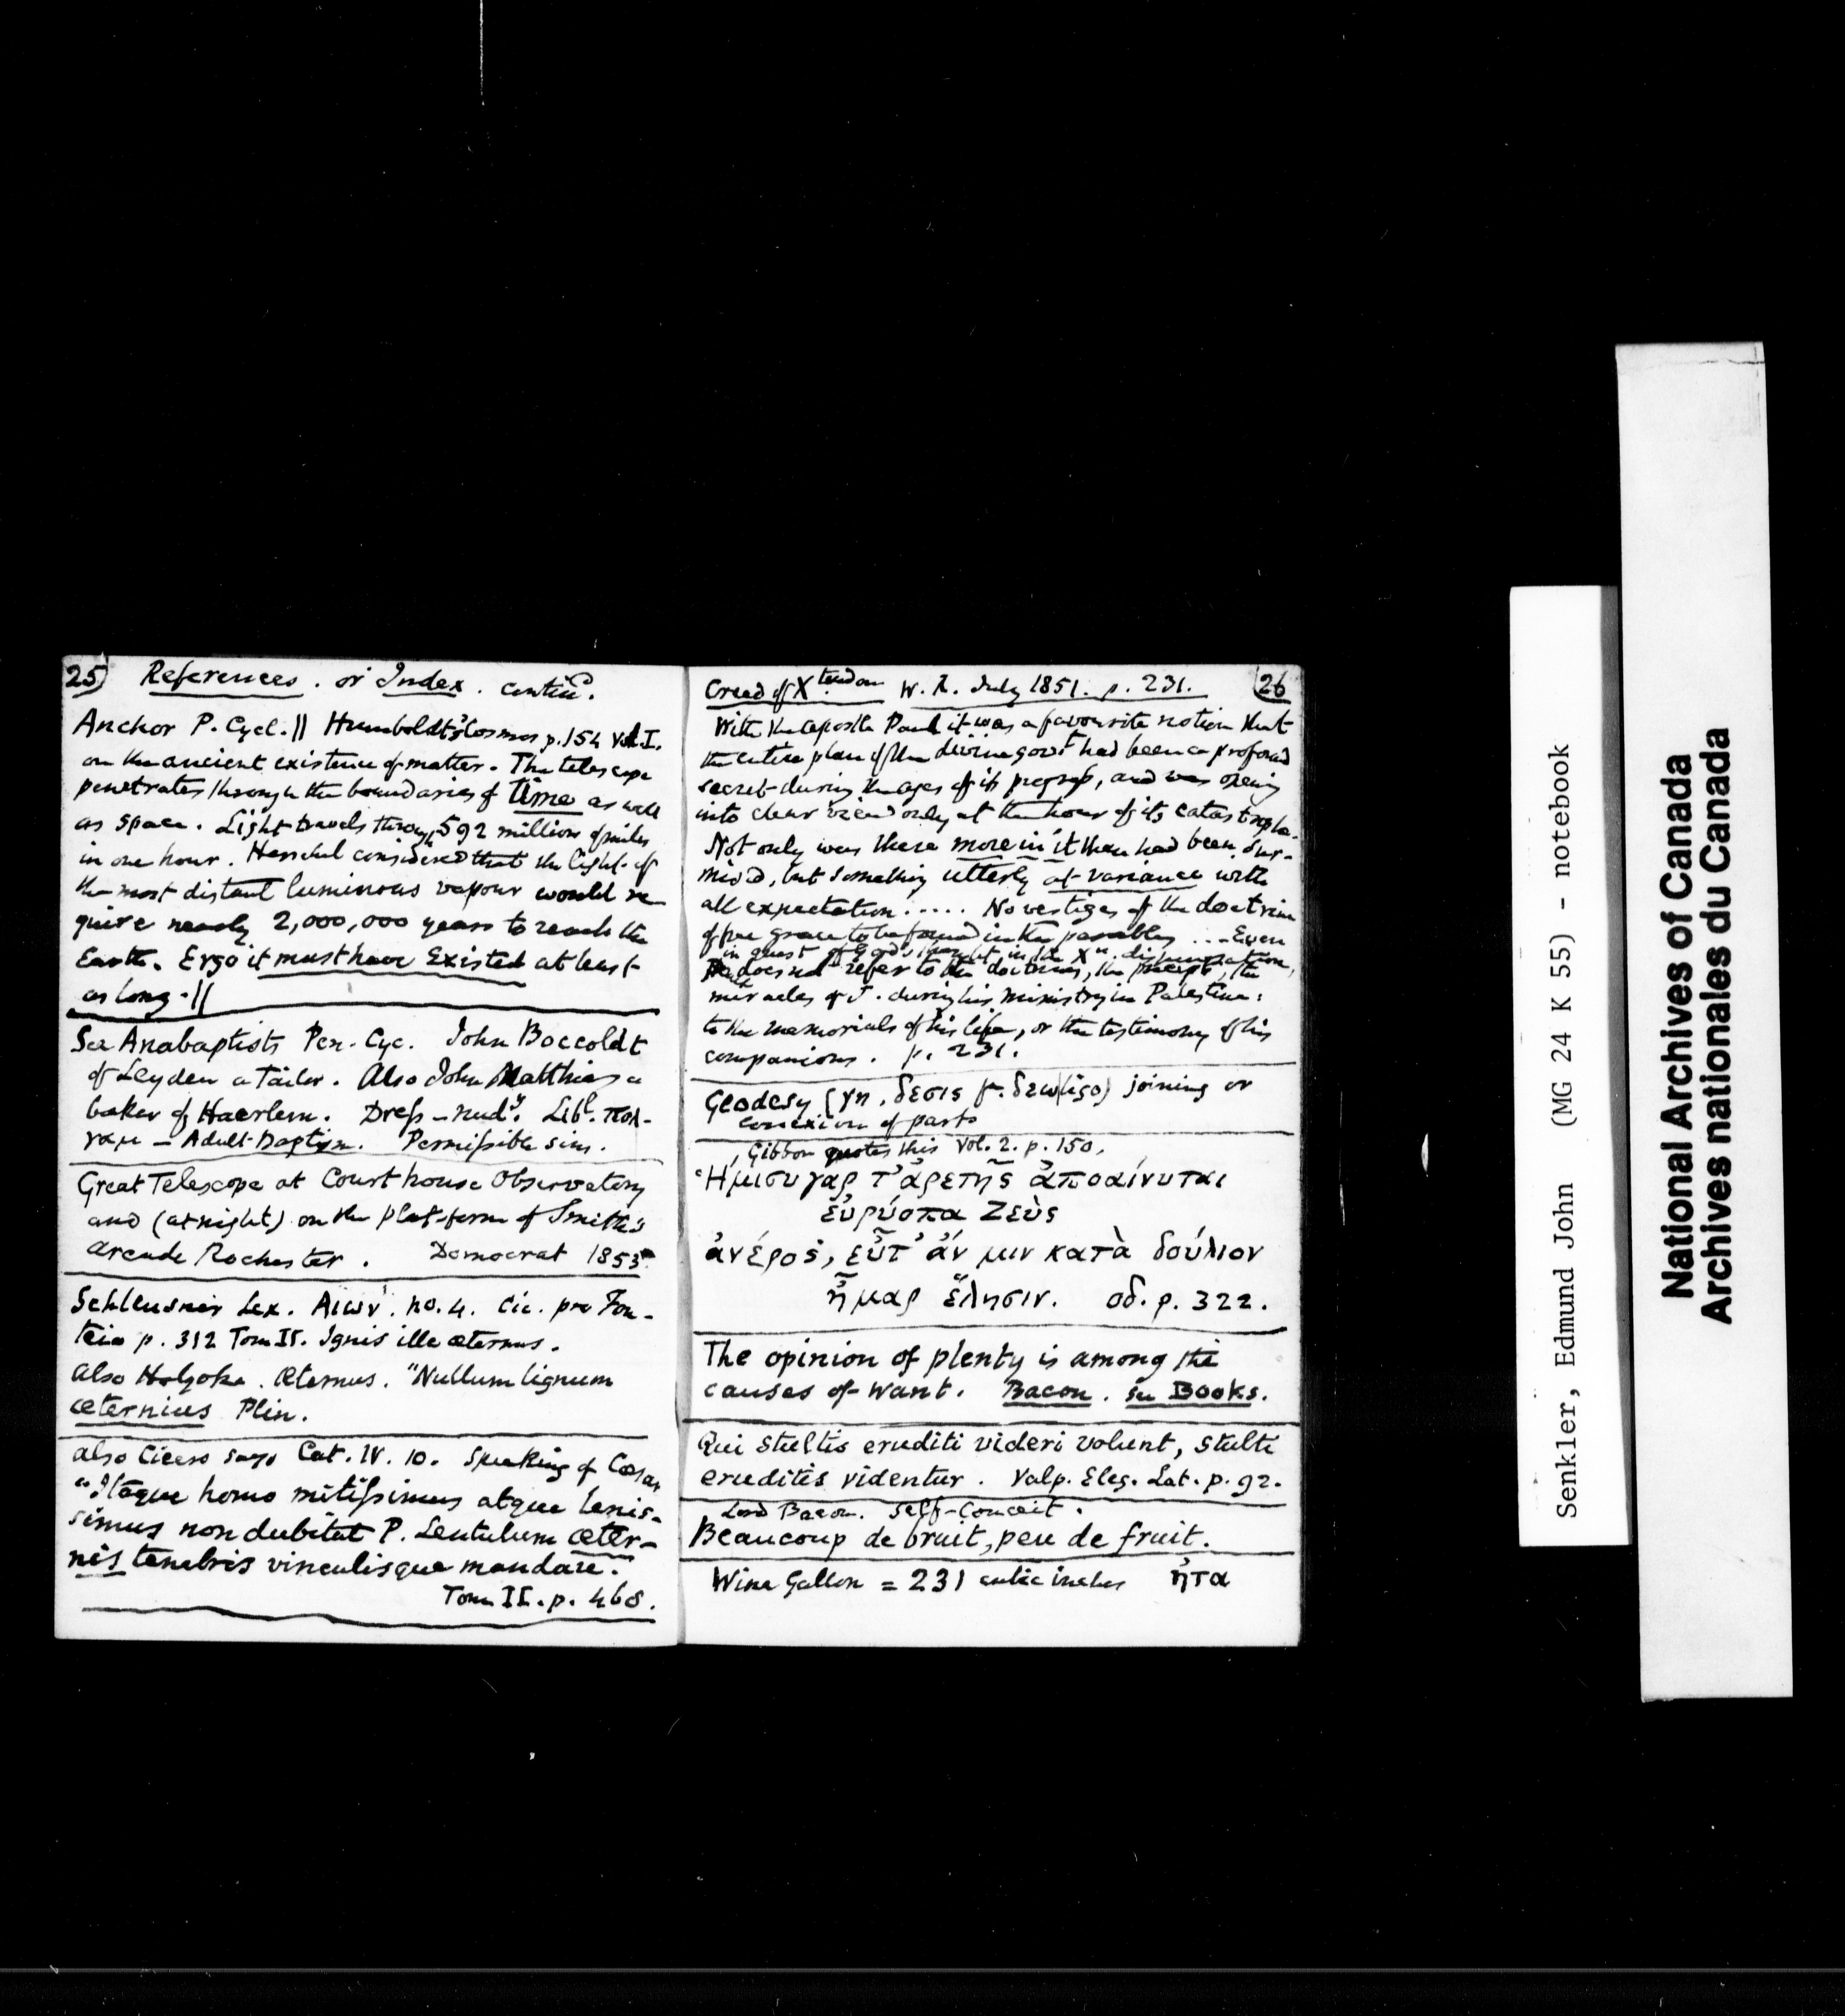 25) References . or Index . contin<sup>d</sup>.
Anchor P. Cycl. || Humboldt's Cosmos p. 154 Vol. I.
on the ancient existence of matter. The telescope
penetrates through the boundaries of time as well
as space. Light travels through 592 millions of miles
in one hour. Herschel considered that the light of
the most distant luminous vapour would re
quire nearly 2,000,000 years to reach the
Earth. Ergo it must have Existed at least
as long. ||
See Anabaptists Pen. Cyc. John Boccoldt
of Leyden a Tailor. Also John Matthias a
baker of Haerlem. Dress – nud<sup>y</sup>. Lib<sup>l</sup>. πολ-
γαμ – Adult-Baptism. Permissible sins.
Great Telescope at Court house Observatory
and (at night) on the plat-form of Smith's
Arcade Rochester. Democrat 1853
Schleusner Lex. Αιων. no. 4. Cic. pro Fon-
teio p. 312 Tom II. Ignis ille æternus.
also Holyoke. Æternus. "Nullum lignum
æternius Plin.
also Cicero says Cat. IV. 10. Speaking of Cæsar,
"Itaque homo mitissimus atque lenis-
simus non dubitat P. Lentulum æter-
nis tenebris vinculisque mandare."
Tom II. p. 468.
Creed of X<sup>tendom</sup> W. R. July 1851. p. 231. (26
With the Apostle Paul it was a favourite notion that
the entire plan of the divine gov<sup>t</sup> had been a profound
secret during the ages of its progress, and was opening
into clear view only at the hour of its catastrophe.
Not only was there more in it than had been sur-
mised, but something utterly at variance with
all expectation ..... No vestiges of the doctrine
of free grace to be found in the parables .... Even
in quest of God's thought in the X<sup>n</sup>. dispensation,
does not refer to the doctrines, the precepts, the
miracles of J. during his ministry in Palestine:
to the memorials of his life, or the testimony of his
companions. p. 231.
Geodesy (γη, δεσις fr. δεω (ligo) joining or
connexion of parts
Gibbon quotes this Vol. 2. p. 150.
Ἡμισυ γαρ τ' ἀρετῆς ἀποαίνυται
εὐρύοπα Ζεὺς
ἀνέρος, εὖτ' ἄν μιν κατὰ δούλιον
ἦμαρ ἕλησιν. οδ. ρ. 322.
The opinion of plenty is among the
causes of want. Bacon. See Books.
Qui stultis eruditi videri volunt, stulti
eruditis videntur. Valp. Eleg. Lat. p. 92.
Lord Bacon. Self-Conceit.
Beaucoup de bruit, peu de fruit.
Wine Gallon = 231 cubic inches ἠτα
Senkler, Edmund John (MG 24 K 55) - notebook
National Archives of Canada
Archives nationales du Canada